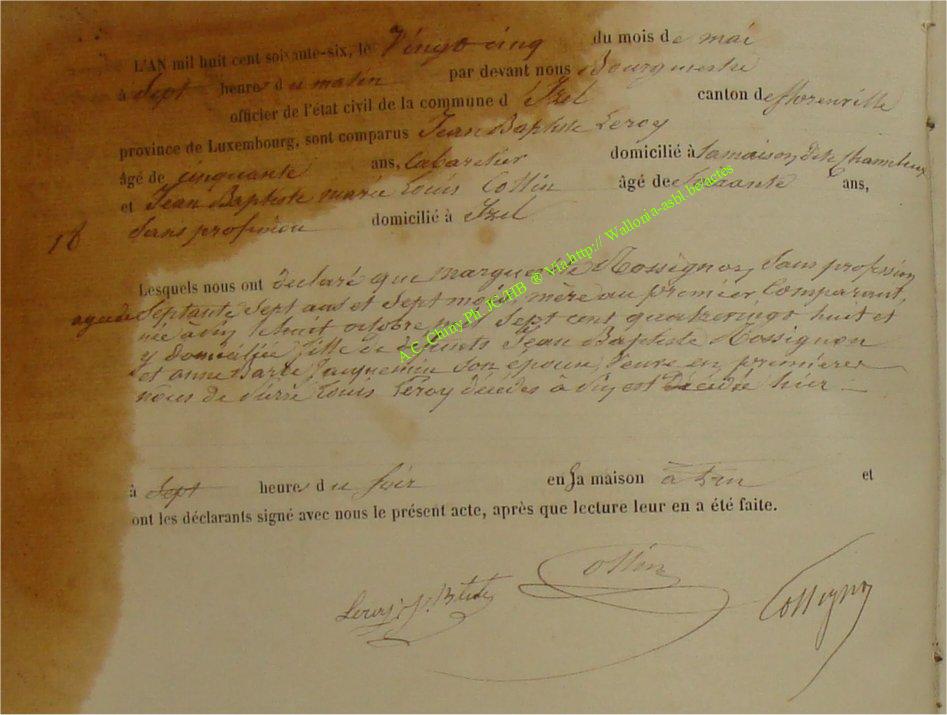 L'AN mil huit cent soixante-six, le Vingt cinq du mois de mai
à Sept heures du matin par devant nous Bourgmestre
officier de l'état civil de la commune d'Izel canton de florenville
province de Luxembourg, sont comparus Jean Baptiste Leroy
âgé de cinquante ans, Cabaretier domicilié à la maison dite Chameleux
et Jean Baptiste marie Louis Collin âgé de ans,
18 Sans profession domicilié à Izel
Lesquels nous ont déclaré que marguerite Rossignon, Sans profession
agée de Septante Sept ans et Sept mois, mère au premier Comparant,
née à le huit octobre mil Sept cent quatrevingt huit et
y domiciliée fille de défunts Jean Baptiste Rossignon
et anne Barbe Jacquemin Son épouse, Veuve en premières
nôces de Pierre Louis Leroy décédé à est Décédée hier
à Sept heures du Soir en sa maison à et
ont les déclarants signé avec nous le présent acte, après que lecture leur en a été faite.
Leroy J. Btiste Collin
A.C. Chiny Ph. JC-HB @ Via http:// Wallonia-asbl be/actes